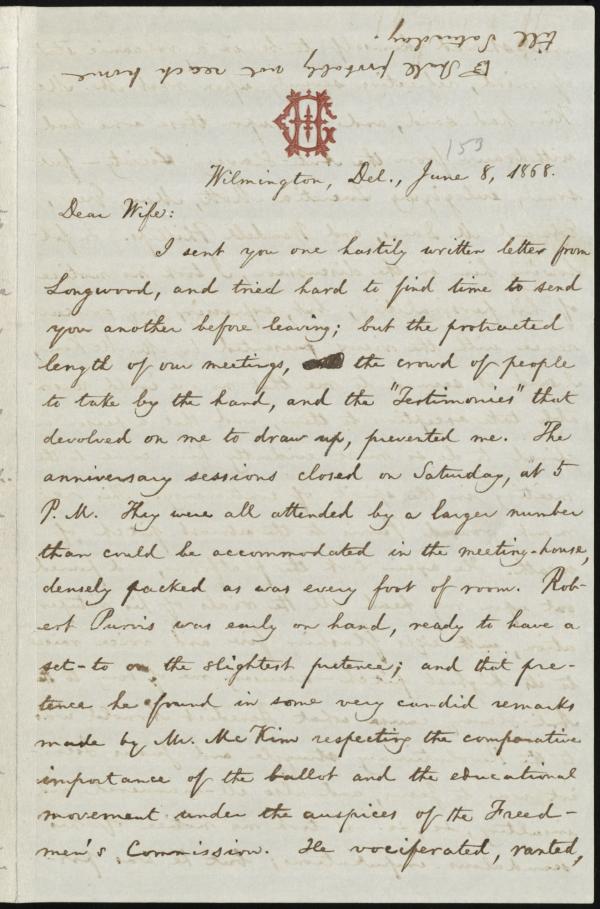 I shall probably not reach home
till Saturday.
153
Wilmington, Del., June 8, 1868.
Dear Wife:
I sent you one hastily written letter from
Longwood, and tried hard to find time to send
you another before leaving; but the protracted
length of our meetings, the crowd of people
to take by the hand, and the "Testimonies" that
devolved on me to draw up, prevented me. The
anniversary sessions closed on Saturday, at 5
P. M. They were all attended by a larger number
than could be accommodated in the meeting-house,
densely packed as was every foot of room. Rob-
ert Purvis was early on hand, ready to have a
set-to on the slightest pretence; and that pre-
tence he found in some very candid remarks
made by Mr. McKim respecting the comparative
importance of the ballot and the educational
movement under the auspices of the Freed-
men's Commission. He vociferated, ranted,